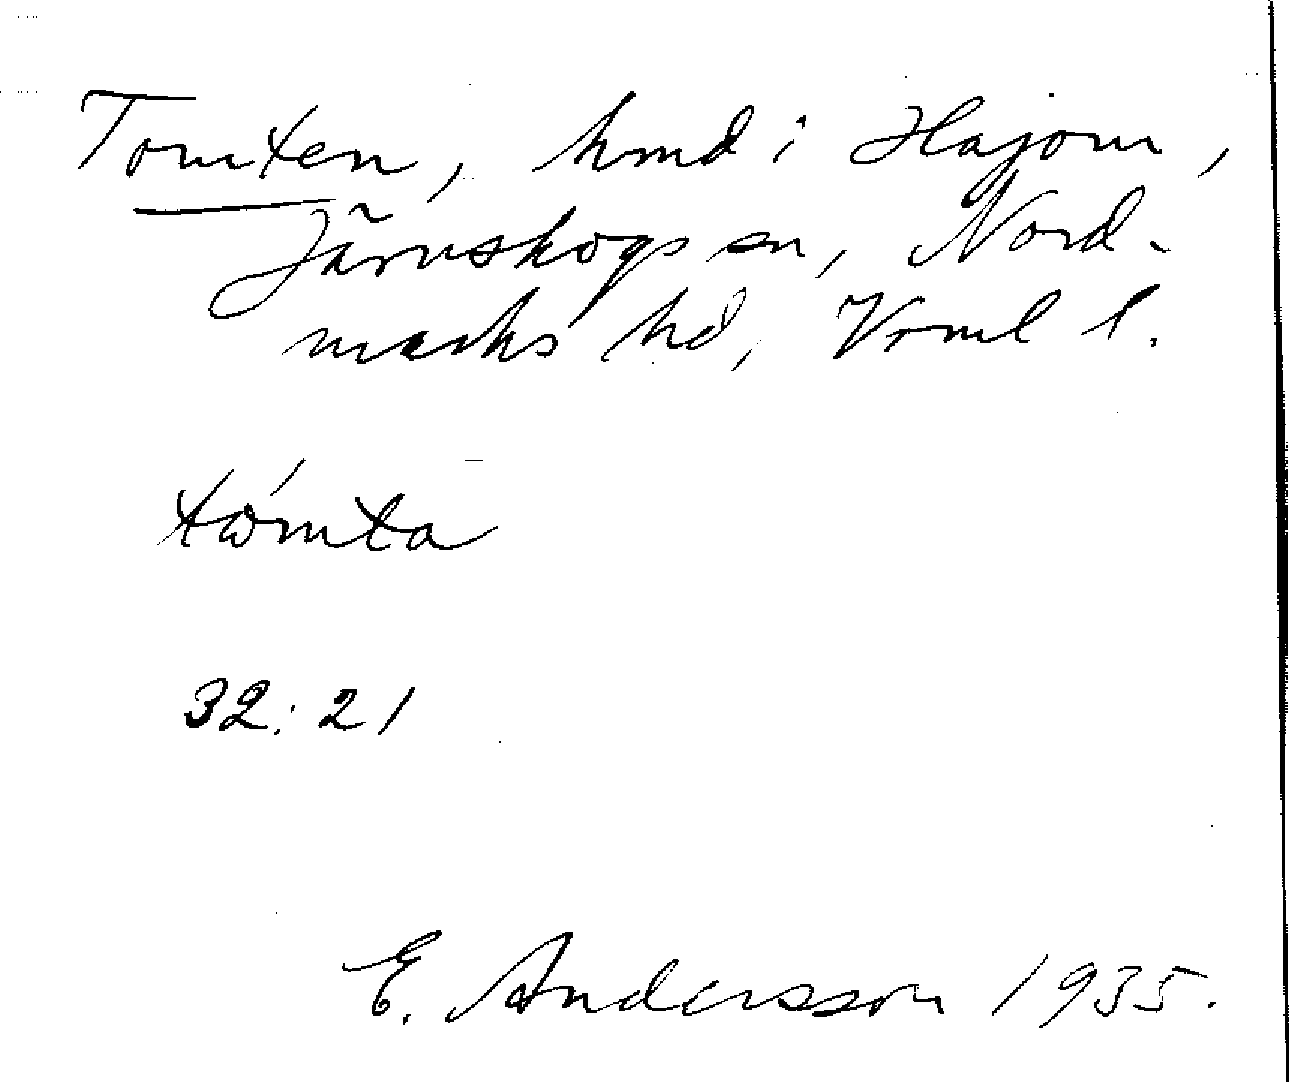 Tomten, hmd i Hajom,
Järnskogs sn, Nord-
marks hd, Vrml l.
tω´mta
32:21
E. Andersson 1935.